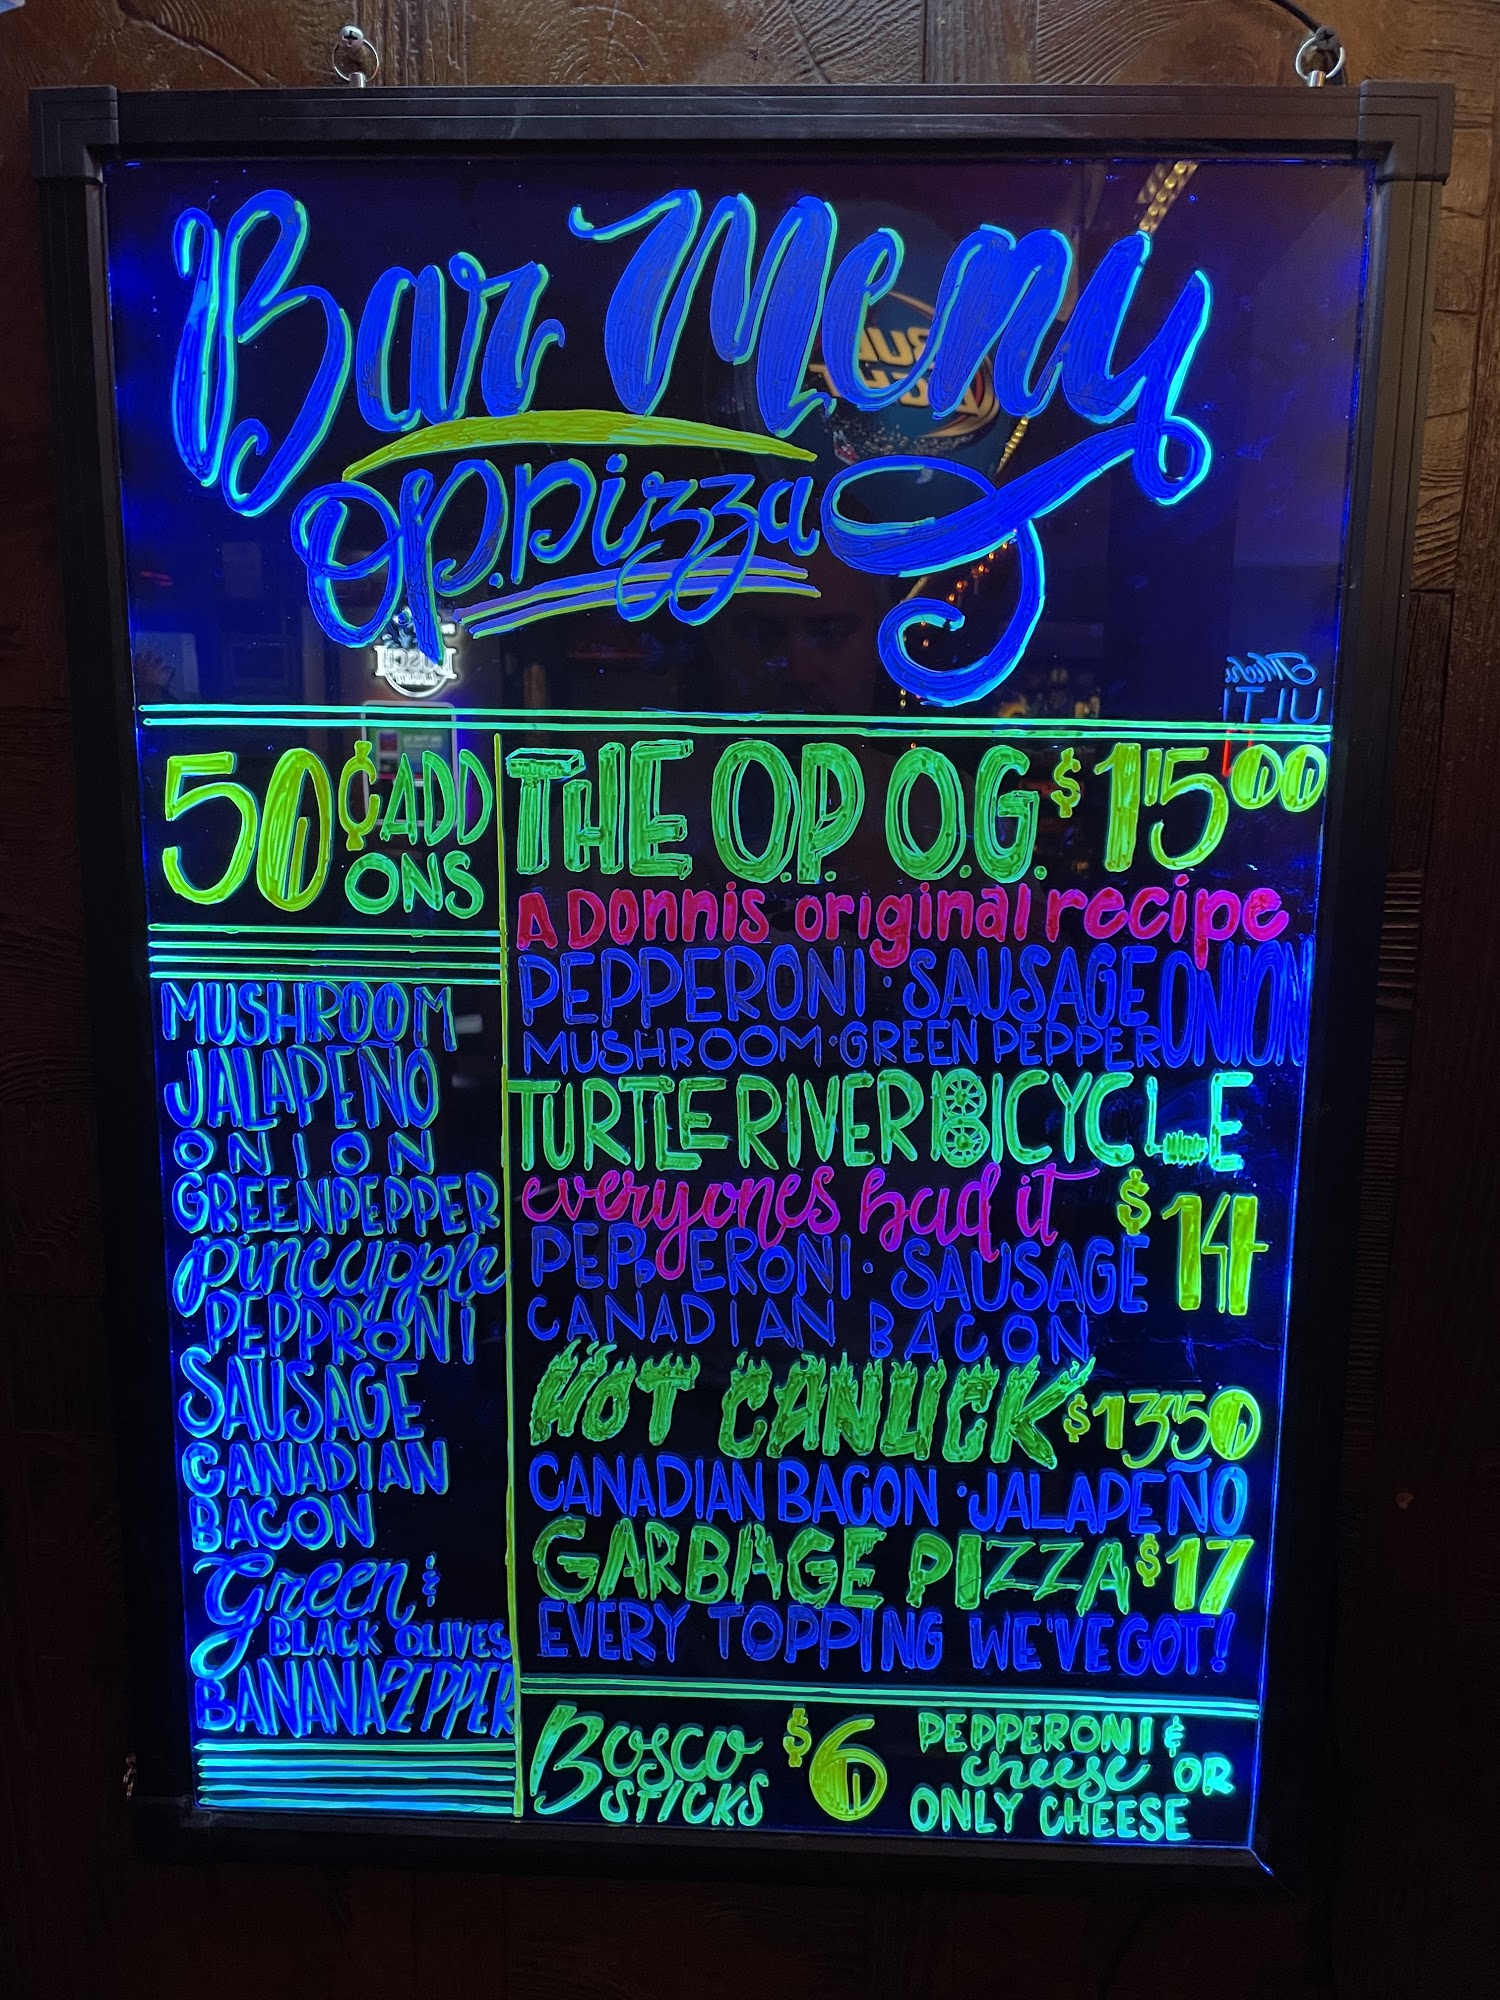 Bar Menu
O.P. Pizza
50¢ ADD
ONS
MUSHROOM
JALAPEÑO
ONION
GREEN PEPPER
pineapple
PEPPRONI
SAUSAGE
CANADIAN
BACON
Green &
BLACK OLIVES
BANANA PEPPER
THE O.P. O.G. $15.00
A DONNIS original recipe
PEPPERONI · SAUSAGE ONION
MUSHROOM · GREEN PEPPER
TURTLE RIVER BICYCLE
everyones had it $14
PEPPERONI · SAUSAGE
CANADIAN BACON
HOT CANUCK $13.50
CANADIAN BACON · JALAPEÑO
GARBAGE PIZZA $17
EVERY TOPPING WE'VE GOT!
Bosco
STICKS
$6
PEPPERONI &
cheese OR
ONLY CHEESE
BUD
LIGHT
BUSCH
LIGHT
ULT